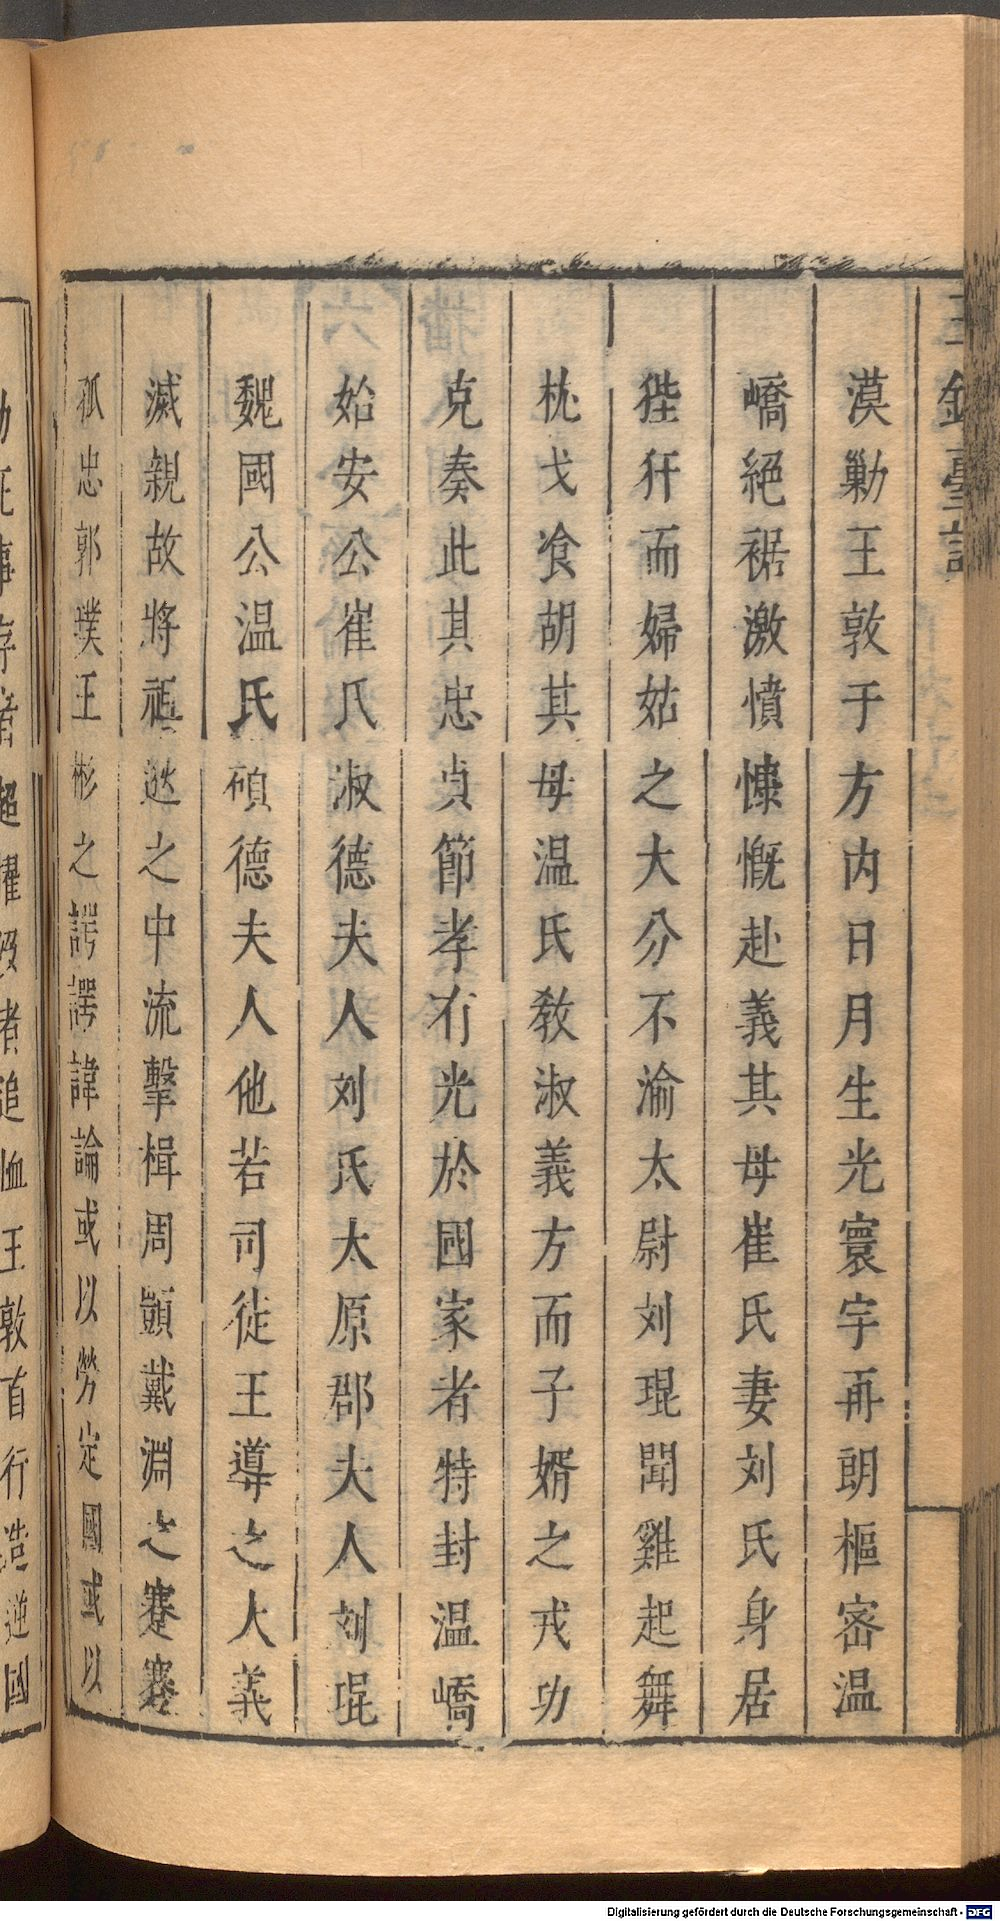 漠勦王敦于方内日月生光寰宇再朗樞密温
嶠絕裾激憤慷慨赴義其母崔氏妻刘氏身居
狴犴而婦姑之大分不渝太尉刘琨聞雞起舞
枕戈飡胡其母温氏敎淑義方而子婿之戎功
克奏此其忠貞節孝有光於國家者特封温嶠
始安公崔氏淑德夫人刘氏太原郡夫人刘琨
魏國公温氏碩德夫人他若司徒王導之大義
滅親故將祖逖之中流擊楫周顗戴淵之蹇蹇
孤忠郭璞王彬之諤諤諱論或以勞定國或以
者超擢歿者追恤王敦首行造逆國
Digitalisierung gefördert durch die Deutsche Forschungsgemeinschaft - DFG